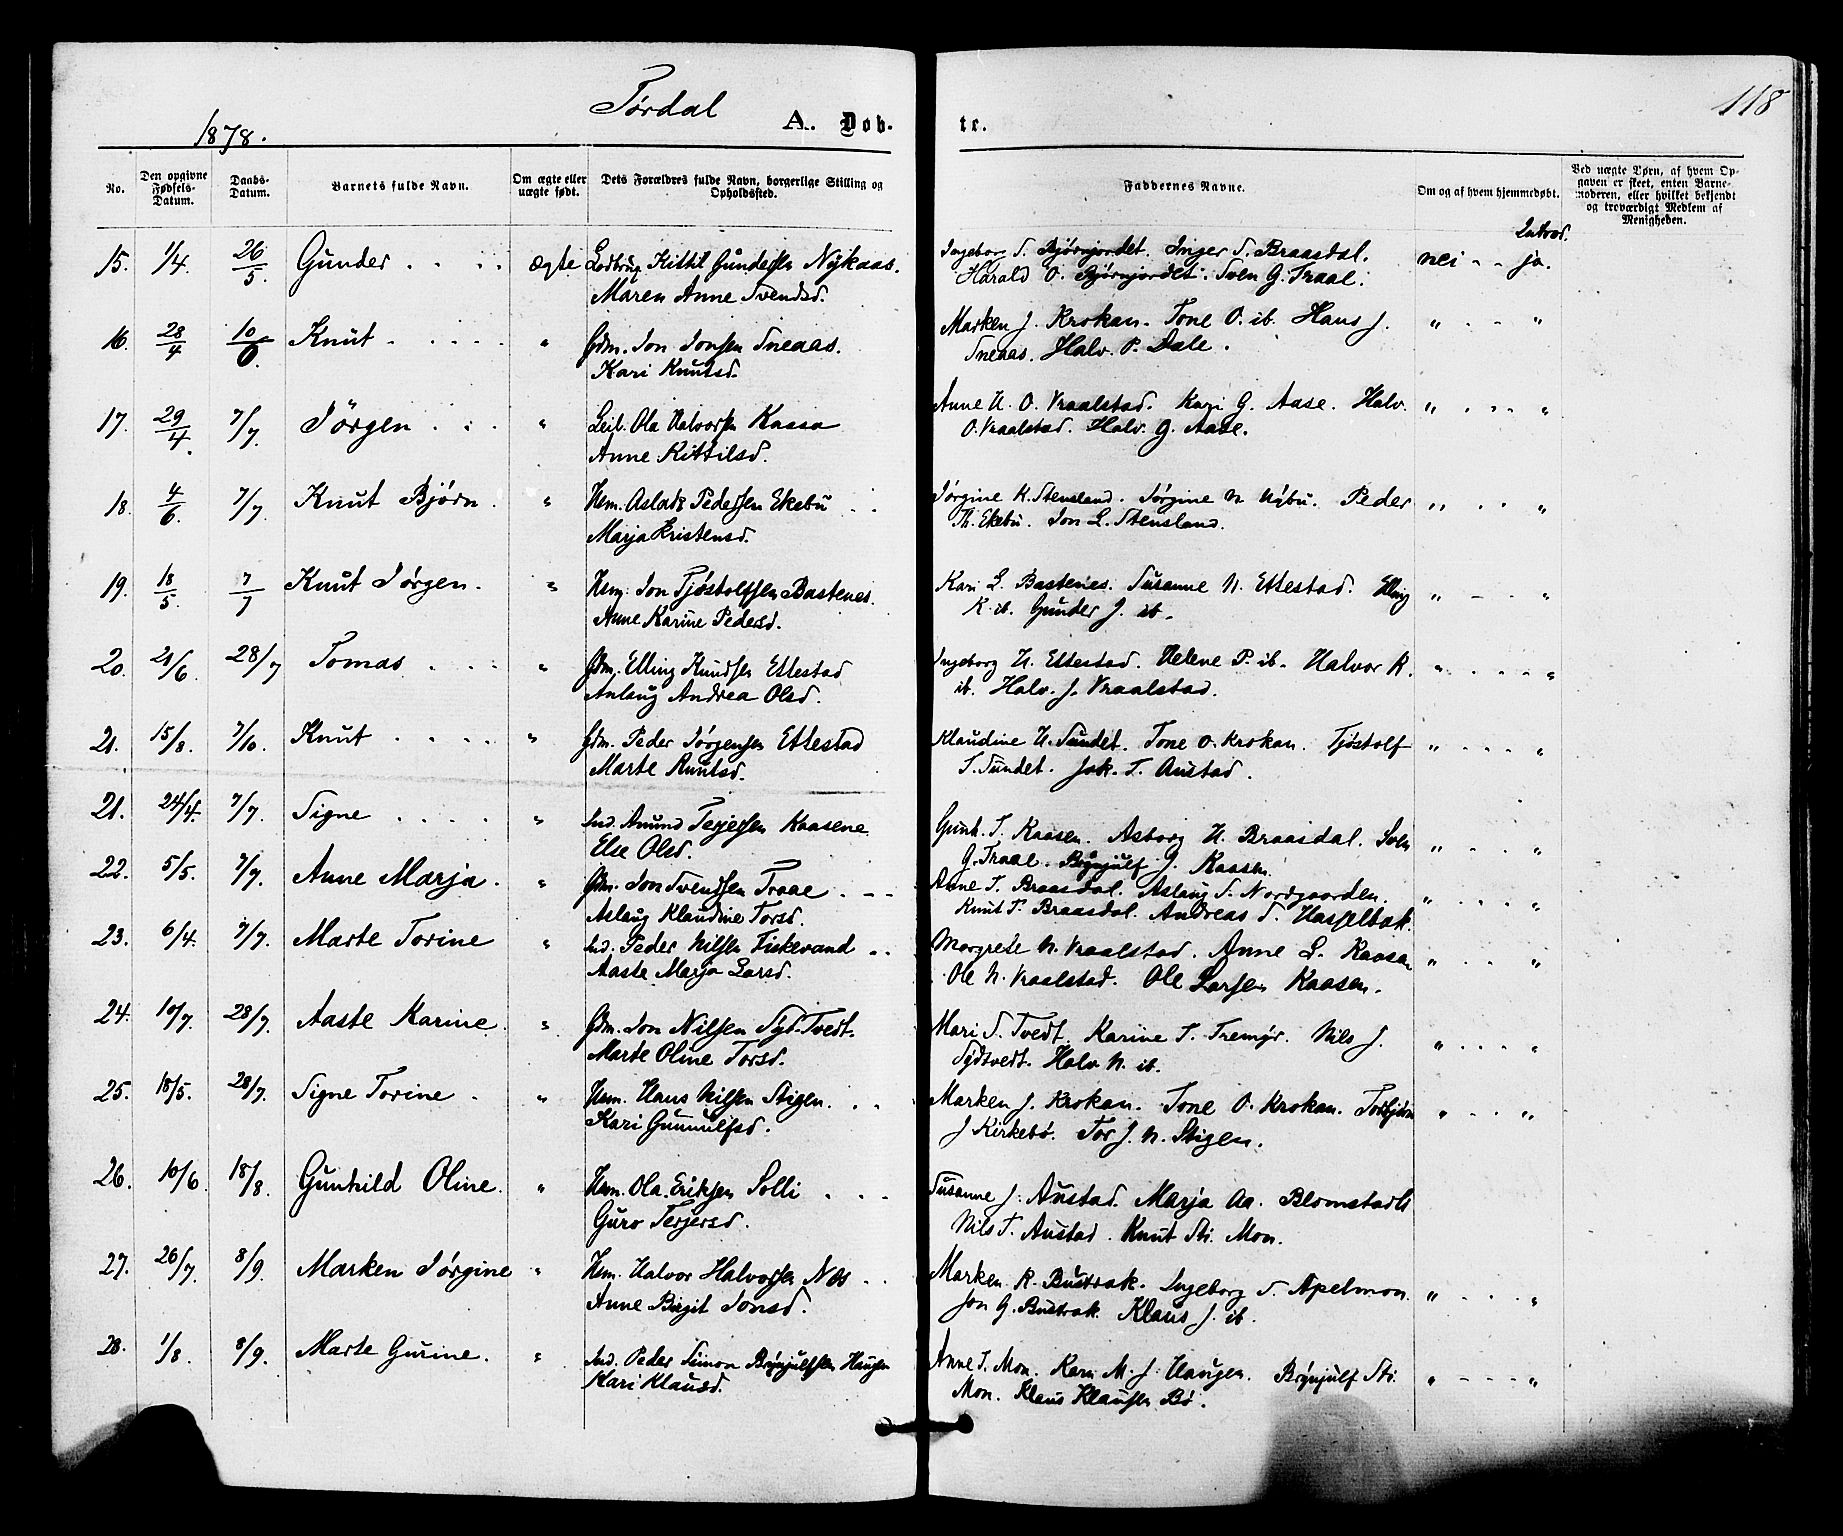 Tørdal
118
1878.
A. Dob- te.
No.
Den opgivne Fødsels-Datum.
Daabs-Datum.
Barnets fulde Navn.
Om ægte eller uægte født.
Dets Forældres fulde Navn, borgerlige Stilling og Opholdssted.
Faddernes Navne.
Om og af hvem hjemmedøbt.
Ved uægte Børn, af hvem Opgaven er skeet, enten Barnemoderen, eller hvilket bekjendt og troværdigt Medlem af Menigheden.
15. 1/4. 26/5. Gunder . . . . ægte Kittil Gundersen Nykaas. Ingeborg S. Bjørnjordet. Inger S. Braasdal. nei - - ja.
Maren Anne Svendsd. Harald O. Bjørnjordet. Sven G. Traal.
16. 28/4 10/6. Knut . . . . . " Gdm. Jon Jonsen Sneaas. Marken J. Krokan. Tone O. ib. Hans J. " . - - "
Kari Knutsd. Sneaas. Halv. P. Dale.
17. 29/4. 7/7. Jørgen . . . " Leil. Ola Halvorsen Kaasa Anne H. O. Vraalstad. Kari G. Aase. Halv. " . . . "
Anne Kittilsd. O. Vraalstad. Halv. G. Aase.
18. 4/6. 7/7. Knut Bjørn . " Hem. Aslak Pedersen Ekebu . . Jørgine K. Stensland. Jørgine N. Nybu. Peder " . . . "
Marja Kristensd. Th. Ekebu. Jon L. Stensland.
19. 18/5. 7/7 Knut Jørgen. " Hem. Jon Tjøstolfsen Bastenes. Kari L. Bastenes. Susanne N. Ettestad. Elling " - - "
Anne Karine Pedersd. K. ib. Gunder J. ib.
20. 21/6. 28/7 Tomas . . . " Gdm. Elling Knudsen Ettestad Ingeborg H. Ettestad. Helene P. ib. Halvor K. " . . . . "
Anlaug Andrea Olsd. ib. Halv. J. Vraalstad.
21. 15/8. 7/10. Knut . . . . " Gdm. Peder Jørgensen Ettestad Klaudine H. Sundet. Tone O. Krokan. Tjøstolf " . . . "
Marte Knutsd. T. Sundet. Jak. T. Austad.
21. 24/4. 7/7. Signe . . . . " Ind. Anund Terjesen Kaasene Gunh. T. Kaasen. Asborg H. Braasdal. Sven " . . "
Else Olsd. G. Traae. Brynjulf J. Kaasen.
22. 5/5. 7/7. Anne Marja. " Gdm. Jon Svendsen Traae . - - Anne T. Braasdal. Aslaug S. Nordgaarden. " . . . "
Aslaug Klaudine Torsd. Knut T. Braasdal. Andreas S. Hasselbak.
23. 6/4. 7/7. Marte Torine " Ind. Peder Nilsen Fiskevand . . Margrete N. Vraalstad. Anne L. Kaasa " . . "
Aaste Marja Larsd. Ole N. Vraalstad. Ole Larsen Kaasen.
24. 10/7. 28/7. Aaste Karine. " Gdm. Jon Nilsen Syd-Tvedt. Mari S. Tvedt. Karine T. Tremyr. Nils J. " . . . "
Marte Oline Torsd. Sydtvedt. Halv. N. ib.
25. 18/5. 28/7. Signe Torine . " Hem. Hans Nilsen Stigen . . Marken J. Krokan. Tone O. Krokan. Torbjørn " . . . "
Kari Gunnulfsd. J Kirkebø. Tor J. N. Stigen.
26. 10/6. 18/8. Gunhild Oline. " Hem. Ola Eriksen Solli . . - Susanne J. Austad. Marja Aa. Blomstadli
Guro Terjersd. Nils T. Austad. Knut Sti. Mon.
27. 26/7. 8/9. Marken Jørgine " Hem. Halvor Halvorsen Næs . . Marken K. Bustrak. Ingeborg S. Apelmon. " . . . . "
Anne Birgit Jonsd. Jon G. Bustrak. Klaus J. ib.
28. 1/8. 8/9. Marte Gurine. " Ind. Peder Simon Brynjulfsen Haugen Anne T. Mon. Karen M. J. Haugen. Brynjulf Sti. " - - - "
Kari Klausd. Mon. Klaus Klausen Bø.